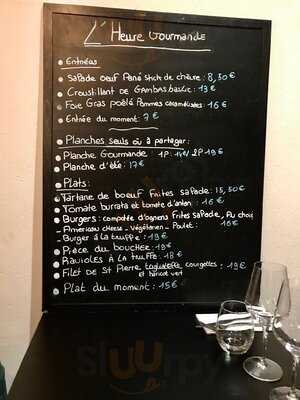 L'Heure Gourmande
Entrées
Salade oeuf Pané stick de chèvre: 8,50€
Croustillant de Gambas basilic: 13€
Foie Gras poêlé Pommes caramélisées: 16€
Entrée du moment: 7€
Planches seuls ou à partager:
Planche Gourmande 1P: 14€/ 2P 19€
Planche d'été: 17€
Plats:
Tartare de boeuf frites salade: 15,50€
Tomate burrata et tomate d'antan: 16€
Burgers: compotée d'oignons frites salade, Au choix
- American cheese - Végétarien - Poulet: 16€
- Burger à la truffe: 19€
Pièce du boucher: 19€
Ravioles à la truffe: 18€
Filet de St Pierre tagliatelle courgettes: 19€
et haricot vert
Plat du moment: 15€
sluurpy